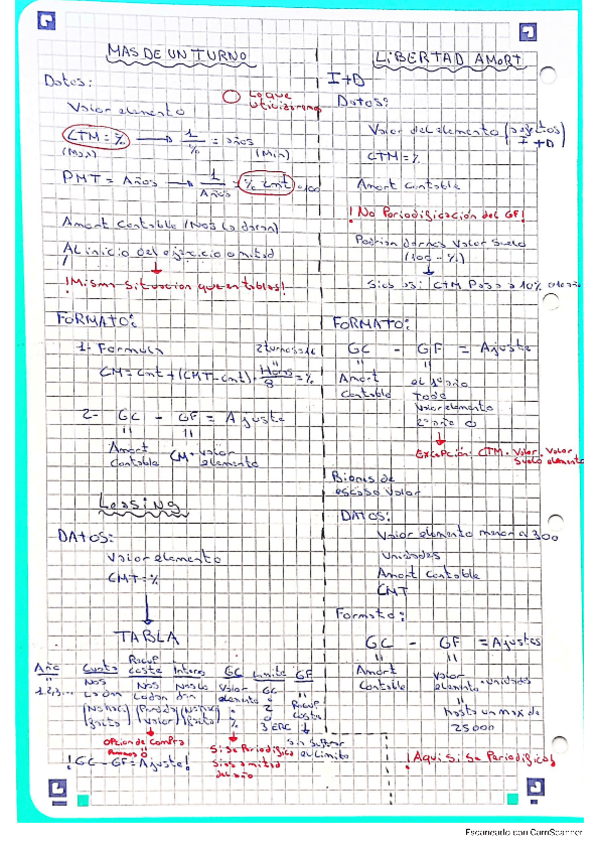 MAS DE UN TURNO
Datos:
Lo que utilizaremos
Valor elemento
CTM = % → 1/% = años
(Max) (Min)
PMT = Años → 1/Años = % cmt · 100
Amort Contable (Nos la daran)
Al inicio del ejercicio o mitad
¡Misma situacion que en tablas!
FORMATO:
1- Formula
2 turnos = 16
CM = cmt + (CMT - cmt) · Horas/8 = %
2- GC - GF = Ajuste
Amort Contable
CM · valor elemento
Leasing
DATOS:
Valor elemento
CMT = %
TABLA
Año Cuota Recup coste Interes GC Limite GF
1,2,3... Nos La dan Nos Lo dan Nos lo dan Valor elemento
Opcion de Compra
Si Se Periodifica
Si es a mitad del año
Sin superar el Limite
¡GC - GF = Ajuste!
LIBERTAD AMORT
I+D
Datos:
Valor del elemento (sujetos I+D)
CTM = %
Amort Contable
¡No Periodificación del GF!
Podrian darnos Valor Suelo
(100 - %)
Si es así: CTM Pasa a 10%
FORMATO:
GC - GF = Ajuste
Amort Contable
el 1º año
Todo
Valor elemento
2º año 0
Excepción: CTM · Valor Suelo · Valor elemento
Bienes de escaso valor
DATOS:
Valor elemento menor a 300
Unidades
Amort Contable
CMT
Formato:
GC - GF = Ajustes
Amort Contable
Valor elemento · unidades
Hasta un max de 25000
¡Aqui Si Se Periodifica!
Escaneado con CamScanner